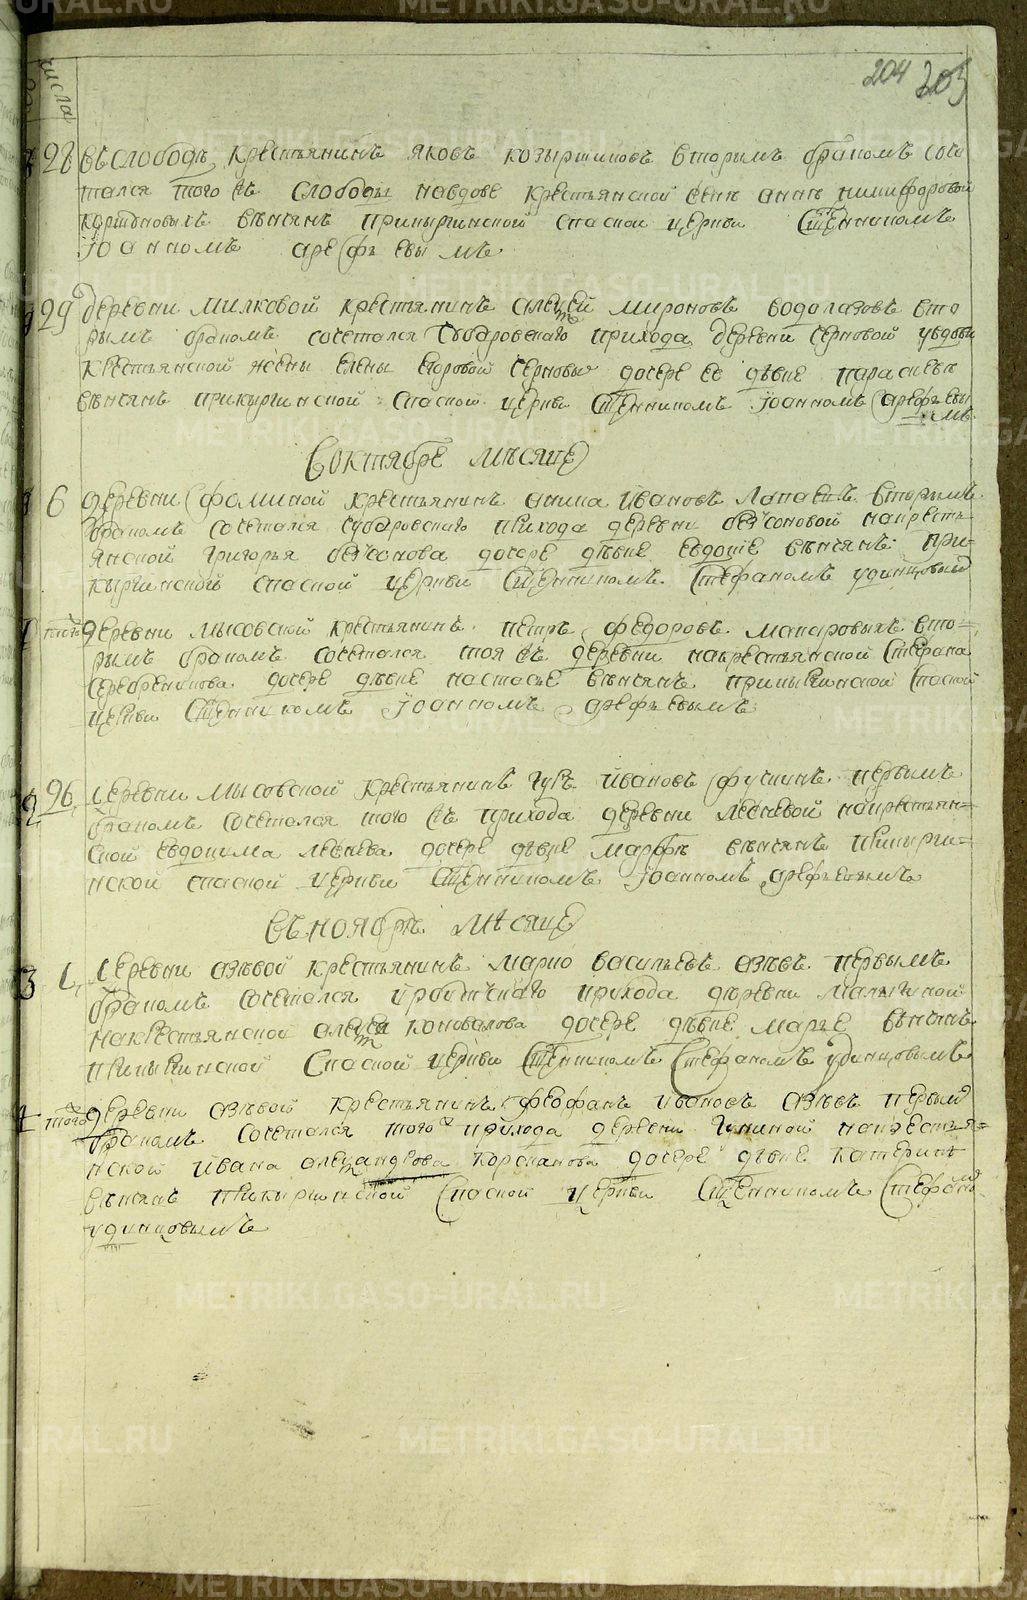 204 205
числа
28 въ слободѣ крестьянинъ яковъ козыршиковъ вторымъ бракомъ соче
тался того жъ слободы на вдове крестьянской женѣ аннѣ никифоровой
вѣнчанъ прикыргинской спаской церкви Сщенникомъ
Iоанномъ арефьевымъ
29 деревни милковой крестьянинъ алеѯей мироновъ водолазовъ вто
рымъ бракомъ сочетался Субаровского прихода деревни черновой у вдовы
крестьянской жены елены егоровой черновы дочере ее дѣвке парасковь
вѣнчанъ прикыргинской спаской церкви Сщенникомъ Iоанномъ арефьевы
мъ
В октябре мѣсяце
6 деревни фоминой крестьянинъ аника ивановъ вторымъ
бракомъ сочетался субаровского прихода деревни безсоновой на кресть
янской григорья безсонова дочере дѣвке евдокiе вѣнчанъ при
кыргинской спаской церкви Сщенникомъ Стефаномъ удинцовымъ
того ж деревни мысовской крестьянинъ петръ федоровъ макаровыхъ вто
рымъ бракомъ сочетался тоя жъ деревни на крестьянской Стефана
Серебреникова дочере дѣвке настасье вѣнчанъ прикыргинской Спаской
церкви Сщенникомъ Iоанномъ арефьевымъ
26 деревни мысовской крестьянинъ гуръ ивановъ первымъ
бракомъ сочетался того жъ прихода деревни лежневой на крестьян
ской евдокима лежнева дочере дѣвке марфѣ вѣнчанъ прикырги
нской спаской церкви Сщенникомъ Iоанномъ арефьевымъ
въ ноябрѣ мѣсяце
3 деревни азѣвой крестьянинъ марко васильевъ азѣвъ первымъ
бракомъ сочетался ирбитского прихода деревни малыгиной
на крестьянской алеѯея коновалова дочере дѣвке марье вѣнчанъ
прикыргинской Спаской церкви Сщенникомъ Стефаномъ удинцовымъ
того ж деревни азѣвой крестьянинъ феофанъ ивановъ азѣвъ первым
бракомъ сочетался того ж прихода деревни гуниной на крестья
нской ивана алеѯандрова дочере дѣвке катеринѣ
вѣнчанъ прикыргинской Спаской церкви Сщенникомъ Стефаном
удинцовымъ
METRIKI.GASO-URAL.RU